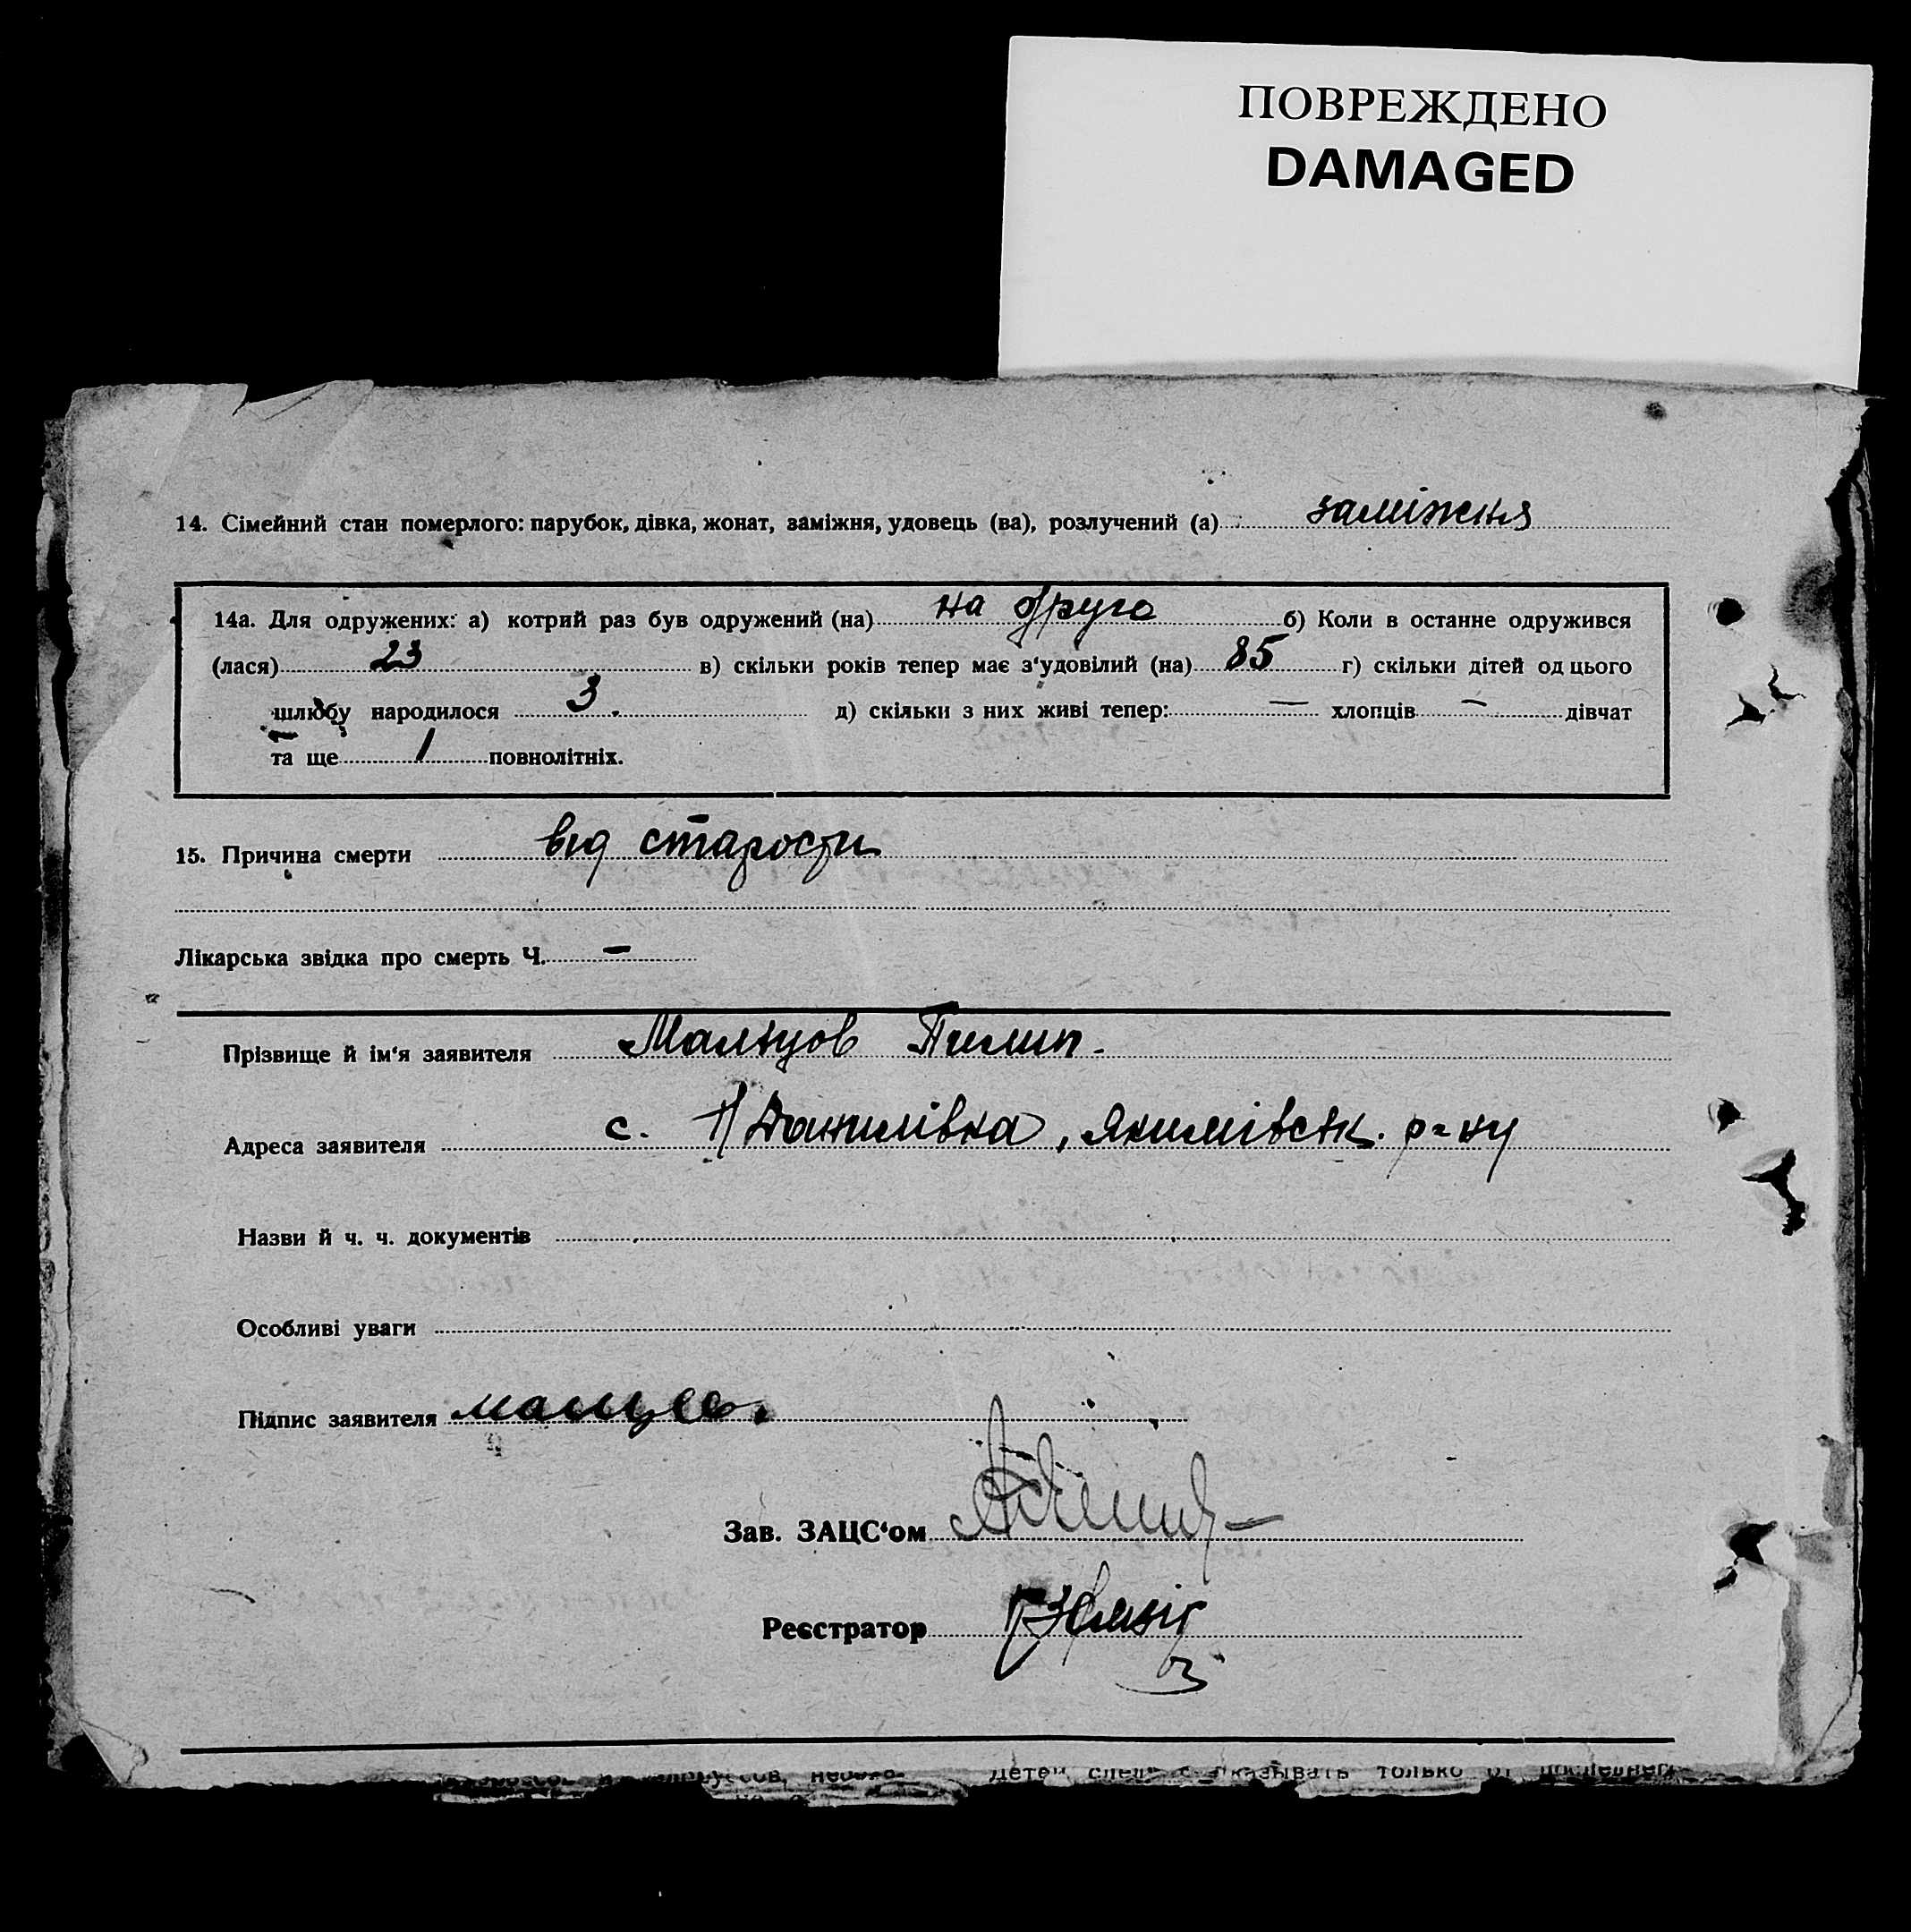 ПОВРЕЖДЕНО
DAMAGED
14. Сімейний стан померлого: парубок, дівка, жонат, заміжня, удовець (ва), розлучений (а) заміжня
14а. Для одружених: а) котрий раз був одружений (на) на друга б) Коли в останне одружився
(лася) 23 в) скільки років тепер має з'удовілий (на) 85 г) скільки дітей од цього
шлюбу народилося 3. д) скільки з них живі тепер: — хлопців — дівчат
та ще 1 повнолітніх.
15. Причина смерти від старости
Лікарська звідка про смерть Ч. —
Прізвище й ім'я заявителя Мальцов Пилип.
Адреса заявителя с. Данилівка, Якимівськ. р-ну
Назви й ч. ч. документів
Особливі уваги
Підпис заявителя
Зав. ЗАЦС'ом
Реєстратор
указывать только от последнего